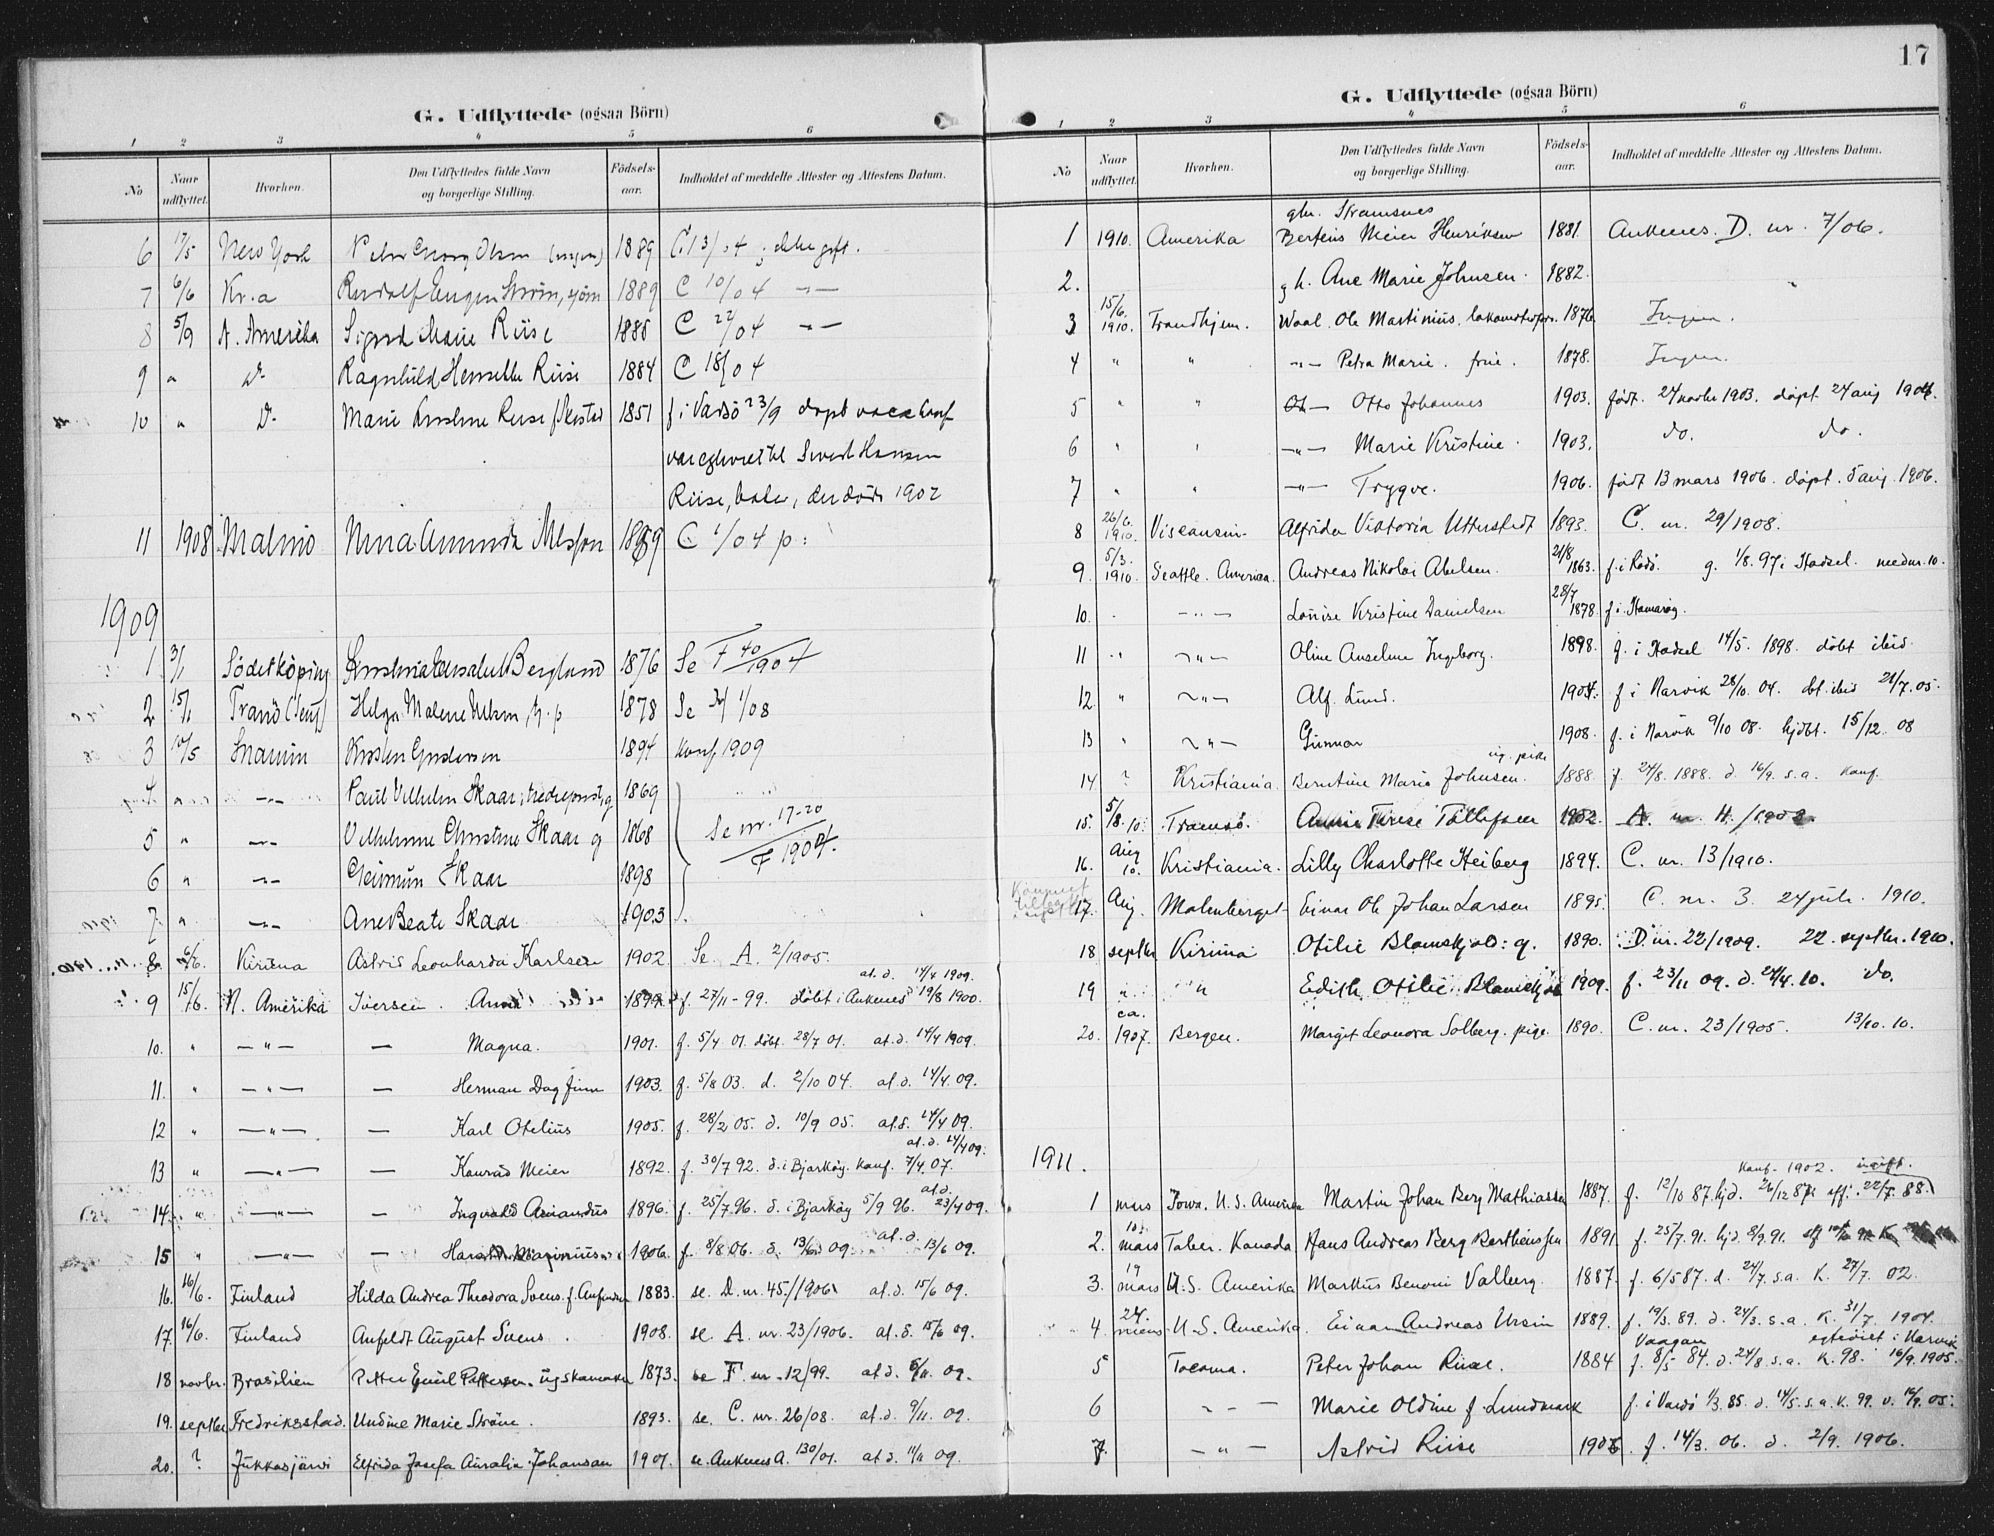 G. Udflyttede (ogsaa Börn)
1 2 3 4 5 6
No Naar udflyttet. Hvorhen. Den Udflyttedes fulde Navn og borgerlige Stilling. Födsels-aar. Indholdet af meddelte Attester og Attestens Datum.
6 17/5 New York Olsen 1889
7 6/6 Kr.a Rudolf Eugen Ström, 1889 C 10/04 -"-
8 5/9 N. Amerika Sigurd Marie Riise 1888 C 22/04 -"-
9 " D- Ragnhild Henrikke Riise 1884 C 18/04
10 " D- Marie Kristine Riise f. 1851 f i Vardö 23/9 döpt
Hansen
Riise, der döde 1902
11 1908 Malmö Nina Amanda Nilsson 1889 C 1/04 p:
1909
1 3/1 Söderköping Berglund 1876 Se F 40/1904
2 15/1 Tranö Helga Malene 1878 Se 1/08
3 10/5 Kristen Gundersen 1894 konf 1909
4 " -"- Paul Vilhelm Skaar, g 1869
5 " -"- Vilhelmine Christine Skaar g 1868 Se nr. 17-20 / F 1904.
6 " -"- Geirmun Skaar 1898
7 " -"- Ane Beate Skaar 1903
8 6/6. Kiruna Astrid Leonharda Karlsen 1902 Se. A. 2/1905.
9 15/6. N. Amerika Iversen. Anna 1899 f. 27/11-99. döbt i Ankenes 19/8 1900. at.d. 14/4 1909.
10. " -"- — Magna. 1901. f. 5/4 01. döbt. 28/7 01. at.d. 14/4 1909.
11. " -"- — Herman Dagfinn 1903. f. 5/8 03. d. 2/10 04. at.d. 14/4. 09.
12 " -"- — Karl Otelius 1905. f. 28/2 05. d. 10/9 05. at.d. 14/4 09.
13 " -"- — Konrad Meier 1892. f. 30/7 92. d. i Bjarköy. konf. 7/4. 07. at.d. 14/4 09.
14. " -"- — Ingvald Amandus 1896. f. 25/7 96. d. i Bjarköy 5/9 96. at.d. 23/4 09.
15 " -"- — Harald Marinius 1906. f. 8/8 06. d. 13/6 09. at.d. 13/6 09.
16. 16/6. Finland Hilda Andrea Theodora Svens. f. 1883. se. D. nr. 45/1906 at.d. 15/6 09.
17. 16/6. Finland Anfeldt August Svens. 1908. se. A. nr. 23/1906. at.d. 15/6 09.
18 novbr. Brasilien Petter Emil Pettersen. 1873. se F. nr. 12/99. at.d. 6/11. 09.
19. septbr. Fredriksstad. Undine Marie Ström. 1893. se. C. nr. 26/08. at.d. 9/11. 09.
20. ? Jukkasjärvi Elfrida Josefa Auralia Johansan 1901. se. Ankenes A. 130/01. at.d. 11/11 09.
17
G. Udflyttede (ogsaa Börn)
1 2 3 4 5 6
No Naar udflyttet. Hvorhen. Den Udflyttedes fulde Navn og borgerlige Stilling. Födsels-aar. Indholdet af meddelte Attester og Attestens Datum.
1 1910. Amerika gbr. Stramsnes Berteus Meier Henriksen 1881. Ankenes. D. nr. 7/06.
2. g h. Ane Marie Johnsen. 1882.
3 15/6. 1910. Trondhjem. Waal. Ole Martinius. 1876 Ingen.
4 " " -"- Petra Marie. frue. 1878. Ingen.
5 " " -"- Otto Johannes 1903. født. 24 novbr 1903. döpt. 24 aug 1904.
6 " " -"- Marie Kristine. 1903. do. do.
7 " " -"- Trygve. 1906. født 13 mars 1906. döpt. 5 aug. 1906.
8 26/6. 1910. Viscansin. Alfrida Viktoria Utterstedt 1893. C. nr. 29/1908.
9. 5/3. 1910. Seattle. Amerika. Andreas Nikolai Abelsen. 21/8 1863. f. i Rödö. g. 1/8. 97 i Hadsel. med nr. 10.
10. " -"- Louise Kristine Danielsen 28/7 1878. f. i Hamarøy.
11 " -"- Oline Anselme Ingeborg. 1898. f. i Hadsel 14/5. 1898. döbt ibid.
12 " -"- Alf. Lund. 1904. f i Narvik 28/10. 04. dbt. ibid 24/7. 05.
13 " -"- Gunnar 1908. f. i Narvik 9/10 08. hjdbt. 15/12 08
14 ? Kristiania. Berntine Marie Johnsen. ug. pike 1888. f. 24/8. 1888. d. 16/9. s.a. konf.
15. 5/8. 10. Tromsö. Annie Terese Tollefsen 1902. A. nr. 4/1902.
16. Aug 10. Kristiania. Lilly Charlotte Heiberg 1894. C. nr. 13/1910.
17. Aug. Malmberget Einar Ole Johan Larsen 1895. C. nr. 3. 24 juli. 1910.
18 septbr Kiruna Otilie Blomskjold: g. 1890. D. nr. 22/1909. 22. septbr. 1910.
19 " " Edith Otilie Blomskjold 1909. f. 23/11 09. d. 24/4. 10. do.
20. ca. 1907. Bergen. Margit Leonora Solberg. pige. 1890. C. nr. 23/1905. 13/10. 10.
1911.
1 mars Iowa. U.S. Amerika Martin Johan Berg Mathiassen 1887. f. 12/10 87. hjd. 26/12 87. 22/7. 88. konf. 1902. ugift.
2. 10/ mars Taber. Kanada Hans Andreas Berg Bertheussen 1891. f. 25/7. 91. hjd. 8/9. 91.
3. 19 mars U.S. Amerika Markus Benoni Valberg. 1887. f. 6/5 87. d. 24/7. s.a. K. 27/7. 02.
4. 24. U.S. Amerika. Einar Andreas Ursin 1889. f. 19/3. 89. d. 24/3. s.a. K. 31/7. 1904.
5 Tacoma. Peter Johan Riise. 1884 f. Vaagan 8/5 84. d. 24/8. s.a. K. 98. egteviet i Narvik 16/9. 1905.
6 -"- Marie Oldine f. Lundmark f. i Vardö 1/3. 85. d. 14/5. s.a. K. 99. v. 16/9. 05.
7. -"- Astrid Riise 1906. f. 14/3. 06. d. 2/9. 1906.